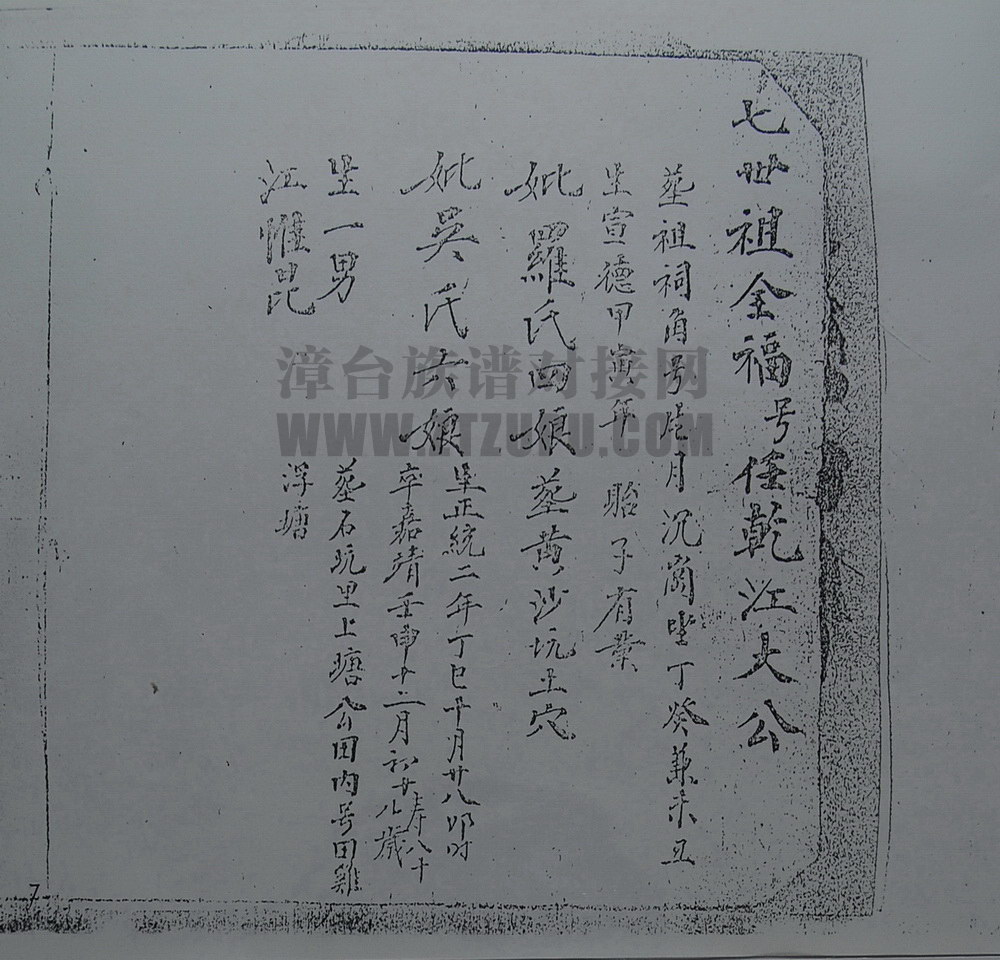 七世祖全福号任乾江大公
墓祖祠角号尾月沉窗坐丁癸兼未丑
生宣德甲寅年 贻子有業
妣羅氏四娘墓黄沙坑土穴
妣吴氏六娘生正統二年丁巳十月廿八卯时
卒嘉靖壬申十二月初廿寿八十八歲
生一男 墓石坑里上塘公田内号田雞
江惟 浮塘
漳台族谱对接网
7